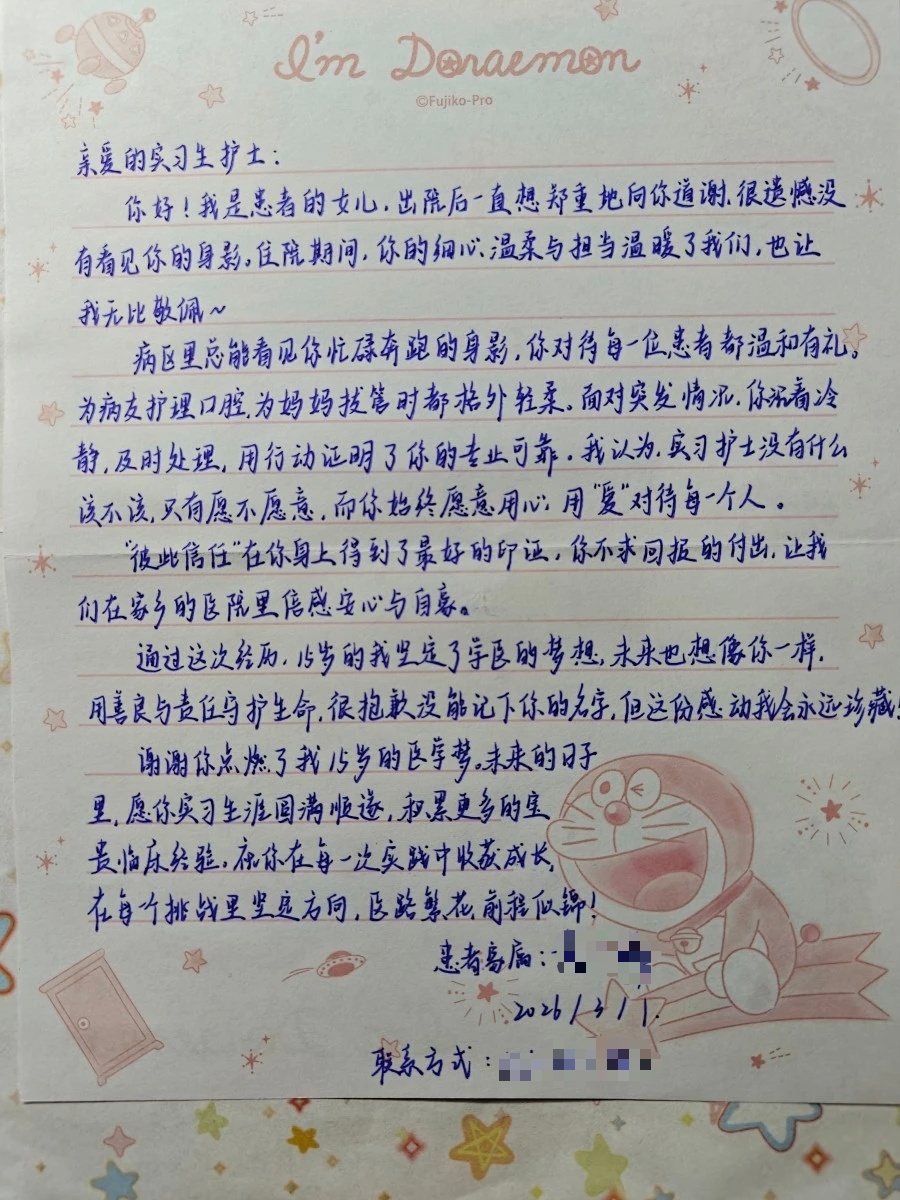 I'm Doraemon
©Fujiko-Pro
亲爱的实习生护士：
你好！我是患者的女儿，出院后一直想郑重地向你道谢，很遗憾没
有看见你的身影。住院期间，你的细心、温柔与担当温暖了我们，也让
我无比敬佩~
病区里总能看见你忙碌奔跑的身影，你对待每一位患者都温和有礼。
为病友护理口腔，为妈妈拔管时都格外轻柔。面对突发情况，你沉着冷
静，及时处理，用行动证明了你的专业可靠。我认为，实习护士没有什么
该不该，只有愿不愿意，而你始终愿意用心，用“爱”对待每一个人。
“彼此信任”在你身上得到了最好的印证，你不求回报的付出，让我
们在家乡的医院里倍感安心与自豪。
通过这次经历，15岁的我坚定了学医的梦想，未来也想像你一样，
用善良与责任守护生命，很抱歉没能记下你的名字，但这份感动我会永远珍藏！
谢谢你点燃了我15岁的医学梦。未来的日子
里，愿你实习生涯圆满顺遂，积累更多的宝
贵临床经验。祝你在每一次实践中收获成长，
在每个挑战里坚定方向，医路繁花，前程似锦！
患者家属：
2026/3/1.
联系方式：